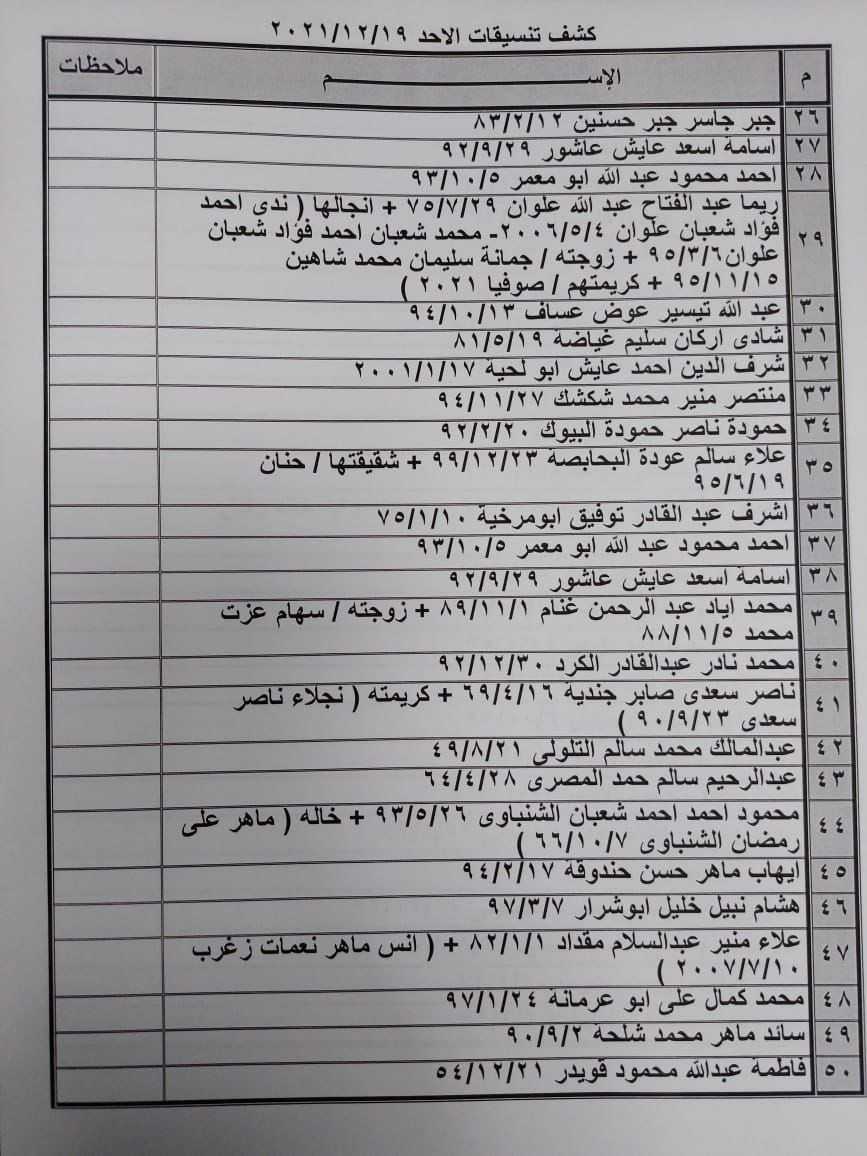 كشف تنسيقات الاحد ٢٠٢١/١٢/١٩
م الإســـــــــــــــــــــم ملاحظات
٢٦ جبر جاسر جبر حسنين ٨٣/٢/١٢
٢٧ اسامة اسعد عايش عاشور ٩٢/٩/٢٩
٢٨ احمد محمود عبد الله ابو معمر ٩٣/١٠/٥
٢٩ ريما عبد الفتاح عبد الله علوان ٧٥/٧/٢٩ + انجالها ( ندى احمد
فؤاد شعبان علوان ٢٠٠٦/٥/٤- محمد شعبان احمد فؤاد شعبان
علوان٩٥/٣/٦ + زوجته / جمانة سليمان محمد شاهين
٩٥/١١/١٥ + كريمتهم / صوفيا ٢٠٢١ )
٣٠ عبد الله تيسير عوض عساف ٩٤/١٠/١٣
٣١ شادى اركان سليم غياضة ٨١/٥/١٩
٣٢ شرف الدين احمد عايش ابو لحية ٢٠٠١/١/١٧
٣٣ منتصر منير محمد شكشك ٩٤/١١/٢٧
٣٤ حمودة ناصر حمودة البيوك ٩٢/٢/٢٠
٣٥ علاء سالم عودة البحابصة ٩٩/١٢/٢٣ + شقيقتها / حنان
٩٥/٦/١٩
٣٦ اشرف عبد القادر توفيق ابومرخية ٧٥/١/١٠
٣٧ احمد محمود عبد الله ابو معمر ٩٣/١٠/٥
٣٨ اسامة اسعد عايش عاشور ٩٢/٩/٢٩
٣٩ محمد اياد عبد الرحمن غنام ٨٩/١١/١ + زوجته / سهام عزت
محمد ٨٨/١١/٥
٤٠ محمد نادر عبدالقادر الكرد ٩٢/١٢/٣٠
٤١ ناصر سعدى صابر جندية ٦٩/٤/١٦ + كريمته ( نجلاء ناصر
سعدى ٩٠/٩/٢٣ )
٤٢ عبدالمالك محمد سالم التلولى ٤٩/٨/٢١
٤٣ عبدالرحيم سالم حمد المصرى ٦٤/٤/٢٨
٤٤ محمود احمد احمد شعبان الشنباوى ٩٣/٥/٢٦ + خاله ( ماهر على
رمضان الشنباوى ٦٦/١٠/٧ )
٤٥ ايهاب ماهر حسن حندوقة ٩٤/٢/١٧
٤٦ هشام نبيل خليل ابوشرار ٩٧/٣/٧
٤٧ علاء منير عبدالسلام مقداد ٨٢/١/١ + ( انس ماهر نعمات زغرب
٢٠٠٧/٧/١٠ )
٤٨ محمد كمال على ابو عرمانة ٩٧/١/٢٤
٤٩ سائد ماهر محمد شلحة ٩٠/٩/٢
٥٠ فاطمة عبدالله محمود قويدر ٥٤/١٢/٢١